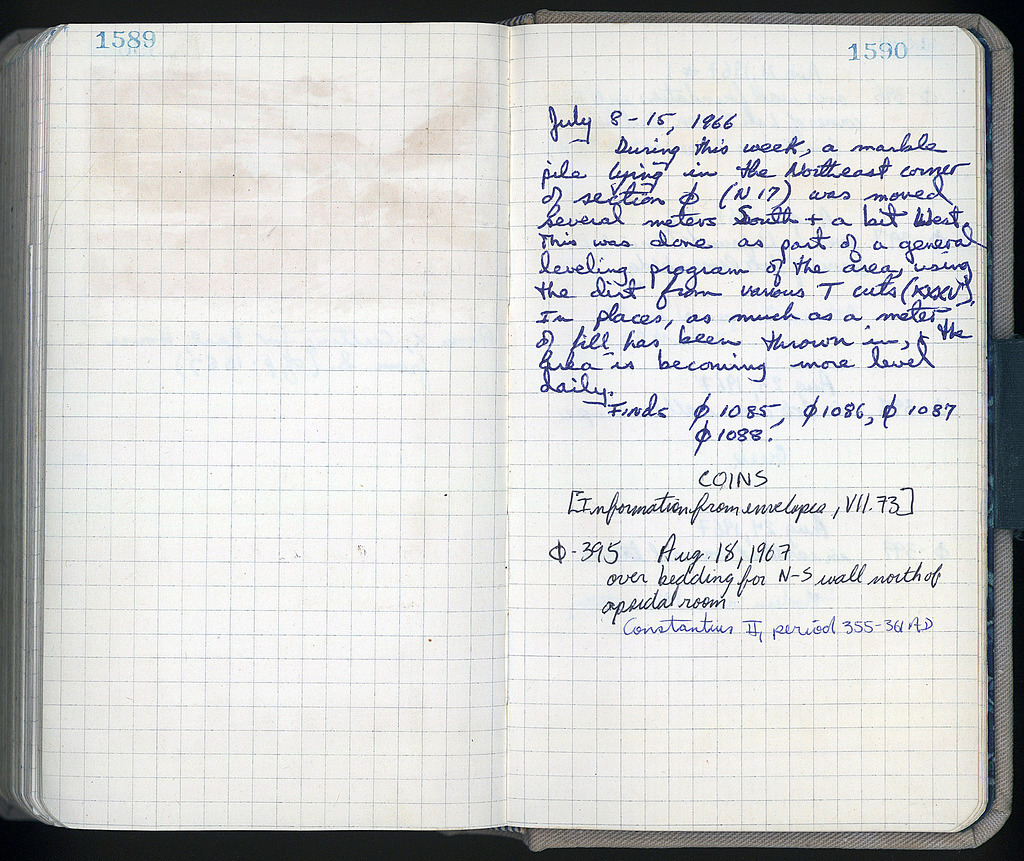 1589
1590
July 8-15, 1966
During this week, a marble
pile lying in the Northeast corner
of section ϕ (N 17) was moved
several meters South + a bit West.
This was done as part of a general
leveling program of the area, using
the dirt from various T cuts (XXXV).
In places, as much as a meter
of fill has been thrown in, + the
area is becoming more level
daily.
Finds ϕ 1085, ϕ 1086, ϕ 1087
ϕ 1088.
COINS
[Information from envelopes, VII.73]
Φ-395 Aug. 18, 1967
over bedding for N-S wall north of
apsidal room
Constantius II, period 355-361 AD